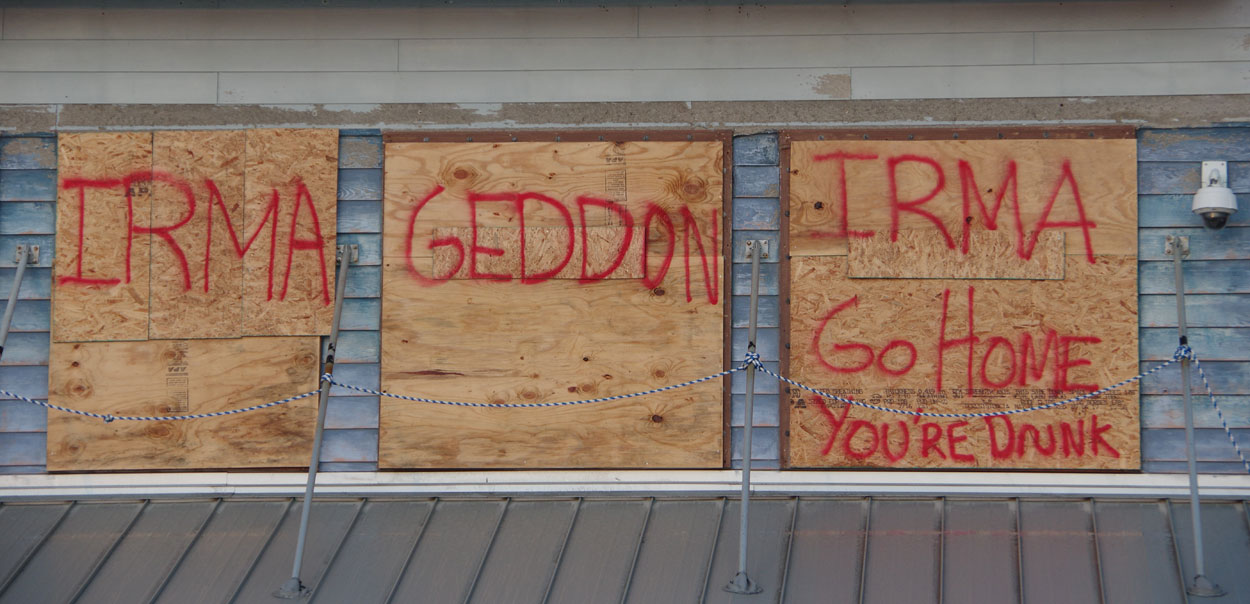 IRMA
GEDDON
IRMA
GO HOME
YOU'RE DRUNK